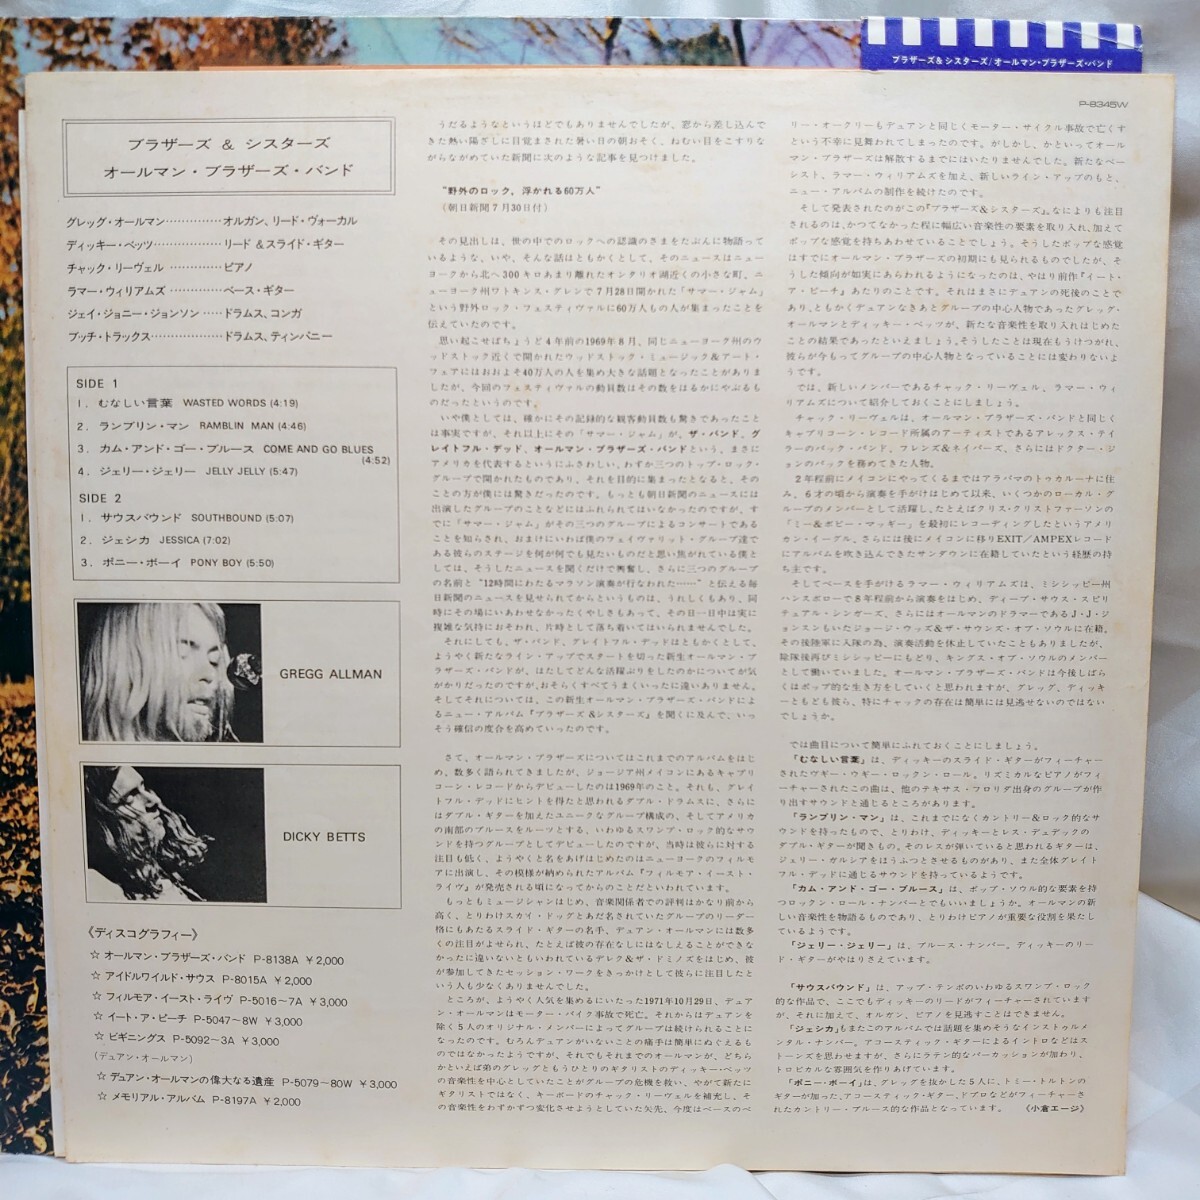 ブラザーズ & シスターズ/オールマン・ブラザーズ・バンド
P-8345W
ブラザーズ & シスターズ
オールマン・ブラザーズ・バンド
グレッグ・オールマン…………オルガン、リード・ヴォーカル
ディッキー・ベッツ………………リード &スライド・ギター
チャック・リーヴェル …………ピアノ
ラマー・ウィリアムズ …………ベース・ギター
ジェイ・ジョニー・ジョンソン ……ドラムス、コンガ
ブッチ・トラックス………………ドラムス、ティンパニー
SIDE 1
1. むなしい言葉 WASTED WORDS (4:19)
2. ランブリン・マン RAMBLIN MAN (4:46)
3. カム・アンド・ゴー・ブルース COME AND GO BLUES (4:52)
4. ジェリー・ジェリー JELLY JELLY (5:47)
SIDE 2
1. サウスバウンド SOUTHBOUND (5:07)
2. ジェシカ JESSICA (7:02)
3. ポニー・ボーイ PONY BOY (5:50)
GREGG ALLMAN
DICKY BETTS
《ディスコグラフィー》
☆ オールマン・ブラザーズ・バンド P-8138A ¥2,000
☆ アイドルワイルド・サウス P-8015A ¥2,000
☆ フィルモア・イースト・ライヴ P-5016〜7A ¥3,000
☆ イート・ア・ピーチ P-5047〜8W ¥3,000
☆ ビギニングス P-5092〜3A ¥3,000
(デュアン・オールマン)
☆ デュアン・オールマンの偉大なる遺産 P-5079〜80W ¥3,000
☆ メモリアル・アルバム P-8197A ¥2,000
うだるようなというほどでもありませんでしたが、窓から差し込んで
きた熱い陽ざしに目覚まされた暑い日の朝おそく、ねむい目をこすりな
がらながめていた新聞に次のような記事を見つけました。
"野外のロック，浮かれる60万人"
(朝日新聞7月30日付)
その見出しは、世の中でのロックへの認識のさまをたぶんに物語って
いるような、いや、そんな話はともかくとして、そのニュースはニュー
ヨークから北へ300キロあまり離れたオンタリオ湖近くの小さな町、ニ
ューヨーク州ワトキンス・グレンで7月28日開かれた「サマー・ジャム」
という野外ロック・フェスティヴァルに60万人もの人が集まったことを
伝えていたのです。
思い起こせばちょうど4年前の1969年8月、同じニューヨーク州のウ
ッドストック近くで開かれたウッドストック・ミュージック&アート・
フェアにはおおよそ40万人の人を集め大きな話題となったことがありま
したが、今回のフェスティヴァルの動員数はその数をはるかにやぶるも
のだったというのです。
いや僕としては、確かにその記録的な観客動員数も驚きであったこと
は事実ですが、それ以上にその「サマー・ジャム」が、ザ・バンド、グ
レイトフル・デッド、オールマン・ブラザーズ・バンドという、まさに
アメリカを代表するというにふさわしい、わずか三つのトップ・ロック・
グループで開かれたものであり、それを目的に集まったとなると、その
ことの方が僕には驚きだったのです。もっとも朝日新聞のニュースには
出演したグループのことなどにはふれられてはいなかったのですが、す
でに「サマー・ジャム」がその三つのグループによるコンサートである
ことを知らされ、おまけにいわば僕のフェイヴァリット・グループ達で
ある彼らのステージを何が何でも見たいものだと思い焦がれている僕と
しては、そうしたニュースを聞くだけで興奮し、さらに三つのグループ
の名前と"12時間にわたるマラソン演奏が行なわれた……"と伝える毎
日新聞のニュースを見せられてからというものは、うれしくもあり、同
時にその場にいあわせなかったくやしさもあって、その日一日中は実に
複雑な気持におそわれ、片時として落ち着いてはいられませんでした。
それにしても、ザ・バンド、グレイトフル・デッドはともかくとして、
ようやく新たなライン・アップでスタートを切った新生オールマン・ブ
ラザーズ・バンドが、はたしてどんな活躍ぶりをしたのかについてが気
がかりだったのですが、おそらくすべてうまくいったに違いありません。
そしてそれについては、この新生オールマン・ブラザーズ・バンドによ
るニュー・アルバム『ブラザーズ &シスターズ』を聞くに及んで、いっ
そう確信の度合を高めていったのです。
さて、オールマン・ブラザーズについてはこれまでのアルバムをはじ
め、数多く語られてきましたが、ジョージア州メイコンにあるキャプリ
コーン・レコードからデビューしたのは1969年のこと。それも、グレイ
トフル・デッドにヒントを得たと思われるダブル・ドラムスに、さらに
はダブル・ギターを加えたユニークなグループ構成の、そしてアメリカ
の南部のブルースをルーツとする、いわゆるスワンプ・ロック的なサウ
ンドを持つグループとしてデビューしたのですが、当時は彼らに対する
注目も低く、ようやくと名をあげはじめたのはニューヨークのフィルモ
アに出演し、その模様が納められたアルバム『フィルモア・イースト・
ライヴ』が発売される頃になってからのことだといわれています。
もっともミュージシャンはじめ、音楽関係者での評判はかなり前から
高く、とりわけスカイ・ドッグとあだ名されていたグループのリーダー
格にもあたるスライド・ギターの名手、デュアン・オールマンには数多
くの注目がよせられ、たとえば彼の存在なしにはなしえることができな
かったに違いないともいわれているデレク&ザ・ドミノズをはじめ、彼
が参加してきたセッション・ワークをきっかけとして彼らに注目したと
いう人も少なくありませんでした。
ところが、ようやく人気を集めるにいたった1971年10月29日、デュア
ン・オールマンはモーター・バイク事故で死亡。それからはデュアンを
除く5人のオリジナル・メンバーによってグループは続けられることに
なったのです。むろんデュアンがいないことの痛手は簡単にぬぐえるも
のではなかったようですが、それでもそれまでのオールマンが、どちら
かといえば弟のグレッグともうひとりのギタリストのディッキー・ベッツ
の音楽性を中心としていたことがグループの危機を救い、やがて新たに
ギタリストではなく、キーボードのチャック・リーヴェルを補充し、そ
の音楽性をわずかずつ変化させようとしていた矢先、今度はベースのベ
リー・オークリーもデュアンと同じくモーター・サイクル事故で亡くす
という不幸に見舞われてしまったのです。がしかし、かといってオール
マン・ブラザーズは解散するまでにはいたりませんでした。新たなベー
シスト、ラマー・ウィリアムズを加え、新しいライン・アップのもと、
ニュー・アルバムの制作を続けたのです。
そして発表されたのがこの『ブラザーズ&シスターズ』。なによりも注目
されるのは、かつてなかった程に幅広い音楽性の要素を取り入れ、加えて
ポップな感覚を持ちあわせていることでしょう。そうしたポップな感覚
はすでにオールマン・ブラザーズの初期にも見られるものでしたが、そ
うした傾向が如実にあらわれるようになったのは、やはり前作『イート・
ア・ピーチ』あたりのことです。それはまさにデュアンの死後のことで
あり、ともかくデュアンなきあとグループの中心人物であったグレッグ・
オールマンとディッキー・ベッツが、新たな音楽性を取り入れはじめた
ことの結果であったといえましょう。そうしたことは現在もうけつがれ、
彼らが今もってグループの中心人物となっていることには変わりないよ
うです。
では、新しいメンバーであるチャック・リーヴェル、ラマー・ウィ
リアムズについて紹介しておくことにしましょう。
チャック・リーヴェルは、オールマン・ブラザーズ・バンドと同じく
キャプリコーン・レコード所属のアーティストであるアレックス・テイ
ラーのバック・バンド、フレンズ&ネイバーズ、さらにはドクター・ジ
ョンのバックを務めてきた人物。
2年程前にメイコンにやってくるまではアラバマのトゥカルーナに住
み、6才の頃から演奏を手がけはじめて以来、いくつかのローカル・グ
ループのメンバーとして活躍し、たとえばクリス・クリストファーソンの
「ミー&ボビー・マッギー」を最初にレコーディングしたというアメリ
カン・イーグル、さらには後にメイコンに移りEXIT/AMPEXレコード
にアルバムを吹き込んできたサンダウンに在籍していたという経歴の持
ち主です。
そしてベースを手がけるラマー・ウィリアムズは、ミシシッピー州
ハンスボローで8年程前から演奏をはじめ、ディープ・サウス・スピリ
チュアル・シンガーズ、さらにはオールマンのドラマーであるJ・J・ジ
ョンスンもいたジョージ・ウッズ&ザ・サウンズ・オブ・ソウルに在籍。
その後陸軍に入隊の為、演奏活動を休止していたこともありましたが、
除隊後再びミシシッピーにもどり、キングス・オブ・ソウルのメンバー
として働いていました。オールマン・ブラザーズ・バンドは今後しばら
くはポップ的な生き方をしていくと思われますが、グレッグ、ディッキ
ーともども彼ら、特にチャックの存在は簡単には見逃せないのではない
でしょうか。
では曲目について簡単にふれておくことにしましょう。
「むなしい言葉」は、ディッキーのスライド・ギターがフィーチャー
されたヴギー・ウギー・ロックン・ロール。リズミカルなピアノがフィ
ーチャーされたこの曲は、他のテキサス・フロリダ出身のグループが作
り出すサウンドと通じるところがあります。
「ランブリン・マン」は、これまでになくカントリー&ロック的なサ
ウンドを持ったもので、とりわけ、ディッキーとレス・デュデックの
ダブル・ギターが聞きもの。そのレスが弾いていると思われるギターは、
ジェリー・ガルシアをほうふつとさせるものがあり、また全体グレイト
フル・デッドに通じるサウンドを持っているようです。
「カム・アンド・ゴー・ブルース」は、ポップ・ソウル的な要素を持
つロックン・ロール・ナンバーとでもいいましょうか。オールマンの新
しい音楽性を物語るものであり、とりわけピアノが重要な役割を果たし
ているようです。
「ジェリー・ジェリー」は、ブルース・ナンバー。ディッキーのリー
ド・ギターがやはりさえています。
「サウスバウンド」は、アップ・テンポのいわゆるスワンプ・ロック
的な作品で、ここでもディッキーのリードがフィーチャーされています
が、それに加えて、オルガン、ピアノを見逃すことはできません。
「ジェシカ」もまたこのアルバムでは話題を集めそうなインストゥルメ
ンタル・ナンバー。アコースティック・ギターによるイントロなどはス
トーンズを思わせますが、さらにラテン的なパーカッションが加わり、
トロピカルな雰囲気を作りあげています。
「ポニー・ボーイ」は、グレッグを抜かした5人に、トミー・トルトンの
ギターが加った、アコースティック・ギター、ドブロなどがフィーチャーさ
れたカントリー・ブルース的な作品となっています。 《小倉エージ》